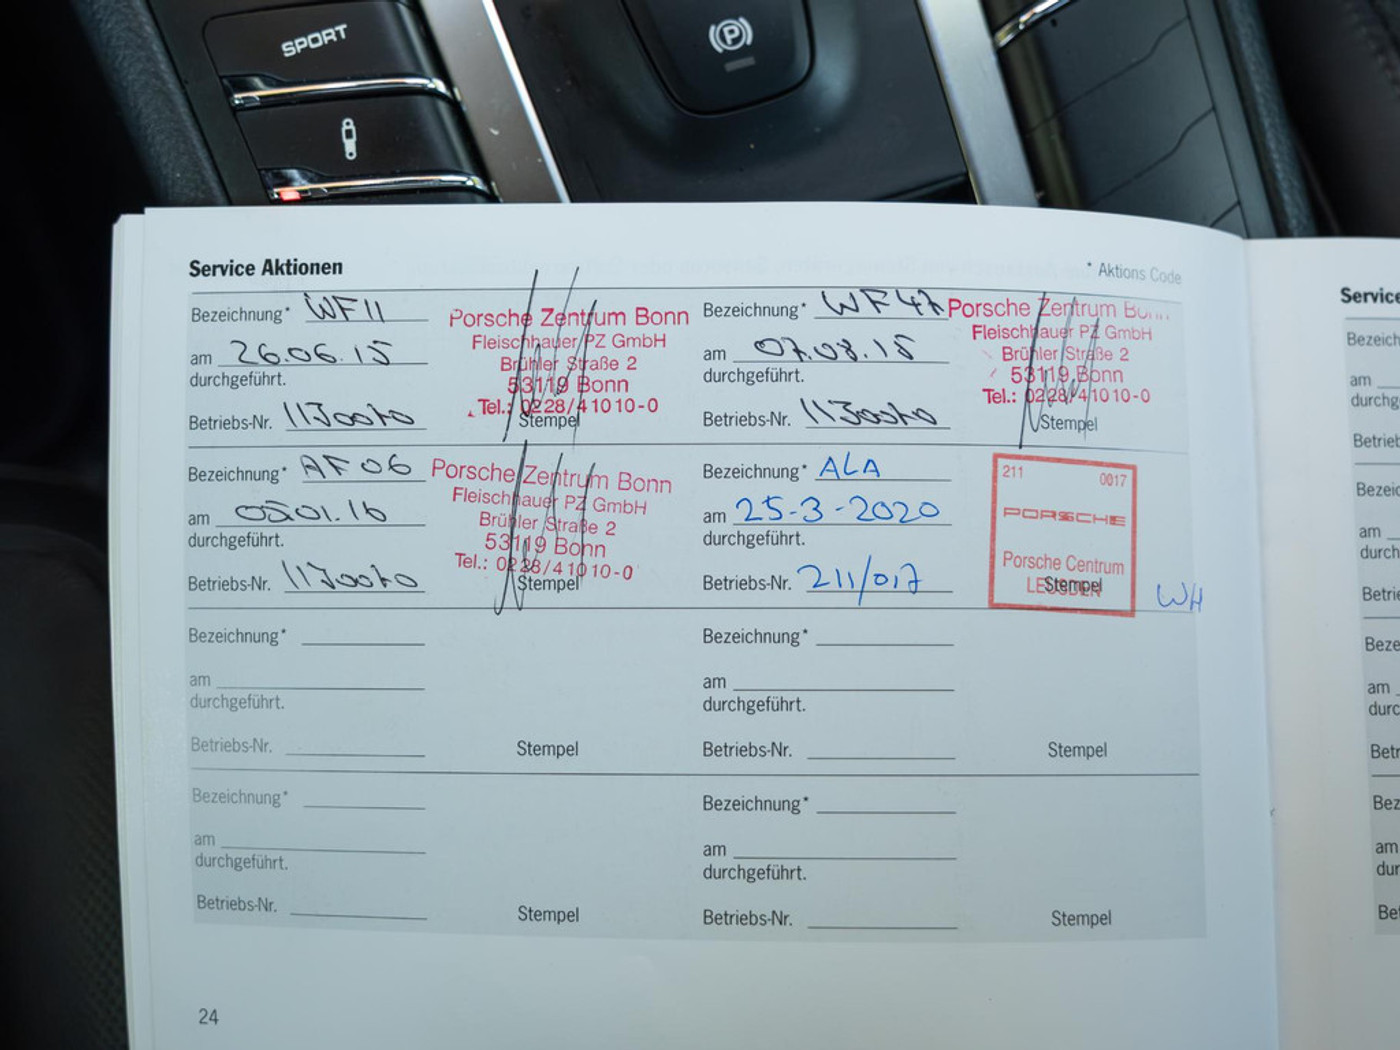 SPORT
P
Service Aktionen
* Aktions Code
Bezeichnung* WF11
am 26.06.15
durchgeführt.
Betriebs-Nr.
Porsche Zentrum Bonn
Fleischhauer PZ GmbH
Brühler Straße 2
53119 Bonn
Tel.: 0228/41010-0
Stempel
Bezeichnung* WF47
am 07.08.15
durchgeführt.
Betriebs-Nr.
Porsche Zentrum Bonn
Fleischhauer PZ GmbH
Brühler Straße 2
53119 Bonn
Tel.: 0228/41010-0
Stempel
Bezeichnung* AF06
am 05.01.16
durchgeführt.
Betriebs-Nr.
Porsche Zentrum Bonn
Fleischhauer PZ GmbH
Brühler Straße 2
53119 Bonn
Tel.: 0228/41010-0
Stempel
Bezeichnung* ALA
am 25-3-2020
durchgeführt.
Betriebs-Nr. 211/017
211 0017
PORSCHE
Porsche Centrum
LEUSDEN
Stempel
WH
Bezeichnung*
am
durchgeführt.
Betriebs-Nr.
Stempel
Bezeichnung*
am
durchgeführt.
Betriebs-Nr.
Stempel
Bezeichnung*
am
durchgeführt.
Betriebs-Nr.
Stempel
Bezeichnung*
am
durchgeführt.
Betriebs-Nr.
Stempel
24
Service
am
am
am
am